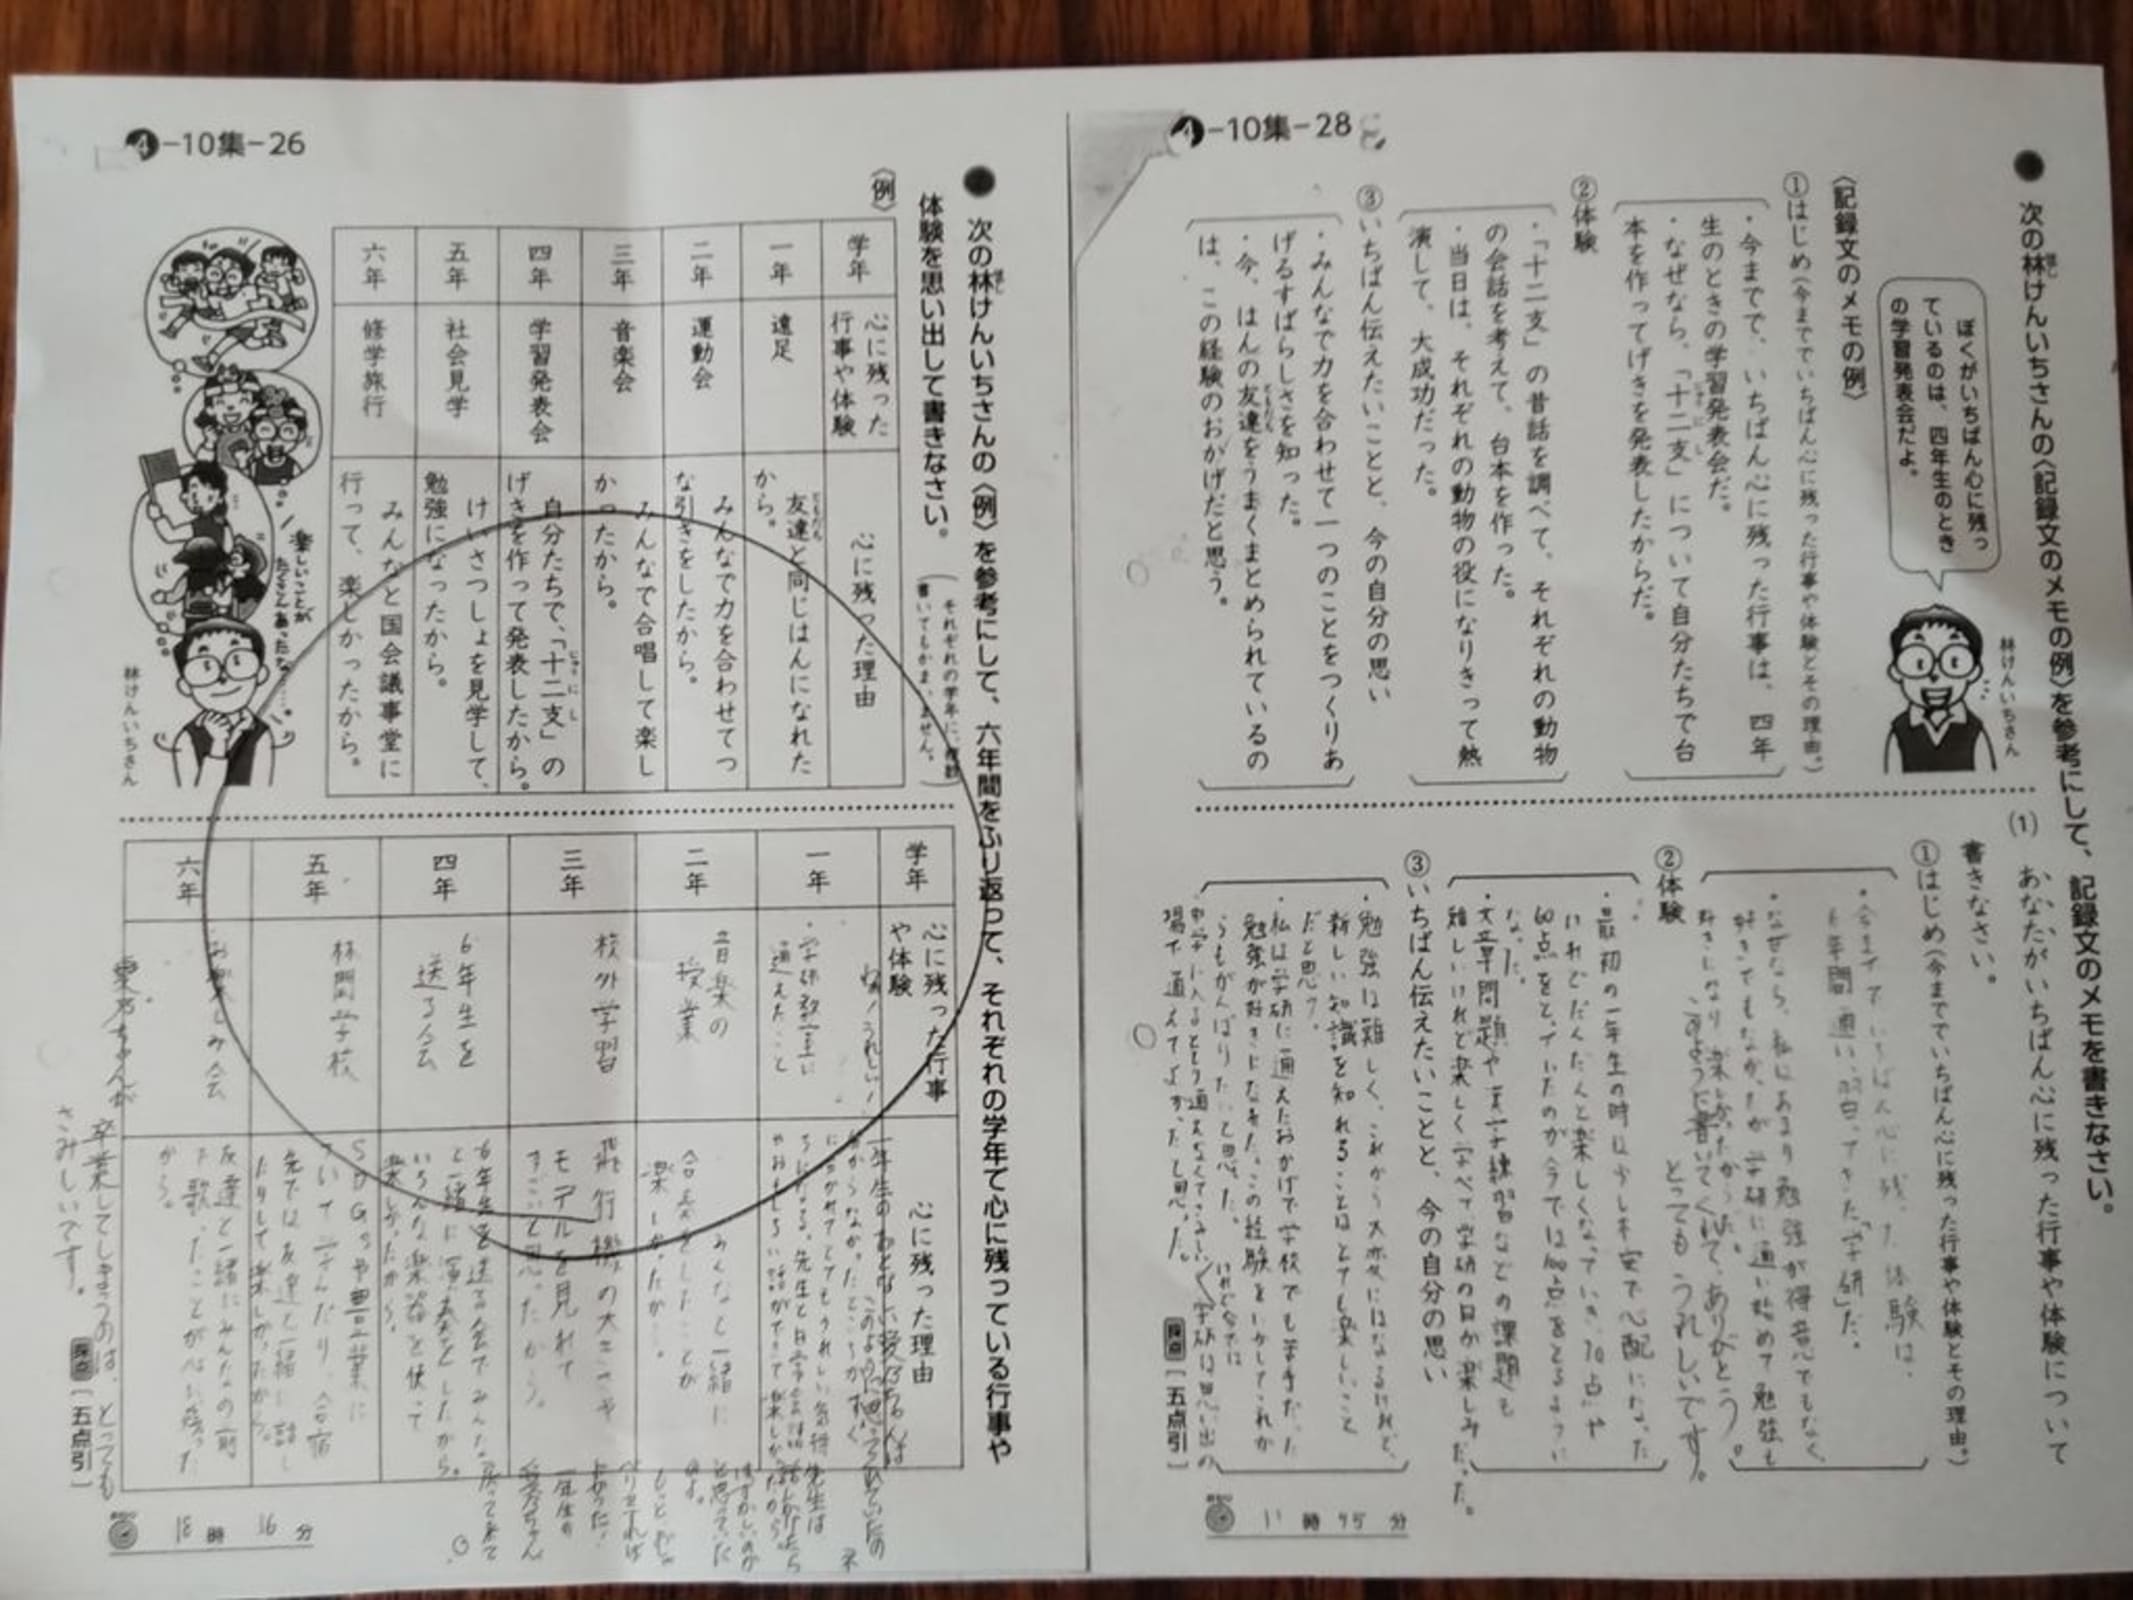 4-10集-28
● 次の林けんいちさんの〈記録文のメモの例〉を参考にして、記録文のメモを書きなさい。
ぼくがいちばん心に残っ
ているのは、四年生のとき
の学習発表会だよ。
林けんいちさん
〈記録文のメモの例〉
①はじめ(今まででいちばん心に残った行事や体験とその理由。)
・今までで、いちばん心に残った行事は、四年
生のときの学習発表会だ。
・なぜなら、「十二支」について自分たちで台
本を作ってげきを発表したからだ。
②体験
・「十二支」の昔話を調べて、それぞれの動物
の会話を考えて、台本を作った。
・当日は、それぞれの動物の役になりきって熱
演して、大成功だった。
③いちばん伝えたいことと、今の自分の思い
・みんなで力を合わせて一つのことをつくりあ
げるすばらしさを知った。
・今、はんの友達をうまくまとめられているの
は、この経験のおかげだと思う。
(1) あなたがいちばん心に残った行事や体験について
書きなさい。
①はじめ(今まででいちばん心に残った行事や体験とその理由。)
・今まででいちばん心に残った体験は、
6年間通い、「学研」だ。
・なぜなら、私はあまり勉強が得意でもなく、
好きでもなかったが学研に通い始めて勉強も
好きになり楽しかったからだ。
このように書いてくれて、ありがとう。
とってもうれしいです。
②体験
・最初の一年生の時は少し不安で心配になった
けれどだんだんと楽しくなっていき、70点や
60点をとっていたのが今では100点をとるように
なった。
・文章問題や漢字練習などの課題も
難しいけれど楽しく学べて学研の日が楽しみだった。
③いちばん伝えたいことと、今の自分の思い
・勉強は難しく、これから大変にはなるけれど、
新しい知識を知れることはとても楽しいこと
だと思う。
・私は学研に通えたおかげで学校でも苦手だった
勉強が好きになれた。この経験をいかしてこれか
らもがんばりたいと思った。
学研は思い出の
場で通えてよかったと思った。
採点[五点引]
11時45分
4-10集-26
● 次の林けんいちさんの〈例〉を参考にして、六年間をふり返って、それぞれの学年で心に残っている行事や
体験を思い出して書きなさい。
(それぞれの学年に、複数
書いてもかまいません。)
〈例〉
学年 心に残った行事や体験 心に残った理由
一年 遠足 友達と同じはんになれたから。
二年 運動会 みんなで力を合わせてつな引きをしたから。
三年 音楽会 みんなで合唱して楽しかったから。
四年 学習発表会 自分たちで、「十二支」のげきを作って発表したから。
五年 社会見学 けいさつしょを見学して、勉強になったから。
六年 修学旅行 みんなと国会議事堂に行って、楽しかったから。
楽しいことが
たくさんあったな……。
林けんいちさん
学年 心に残った行事や体験 心に残った理由
一年 ・学研教室に通えたこと
二年 音楽の授業 みんなと一緒に合奏をしたことが楽しかったから。
三年 校外学習 飛行機の大きさやモデルを見れてすごいと思ったから。
四年 6年生を送る会 6年生を送る会でみんなと一緒に演奏をしたから。いろんな楽器を使って楽しかったから。
五年 林間学校 SDGsや農業について学んだり、合宿先では友達と一緒に話したりして楽しかったから。
六年 お楽しみ会 友達と一緒にみんなの前で歌ったことが心に残ったから。
卒業してしまうのは、とっても
さみしいです。
採点[五点引]
18時16分